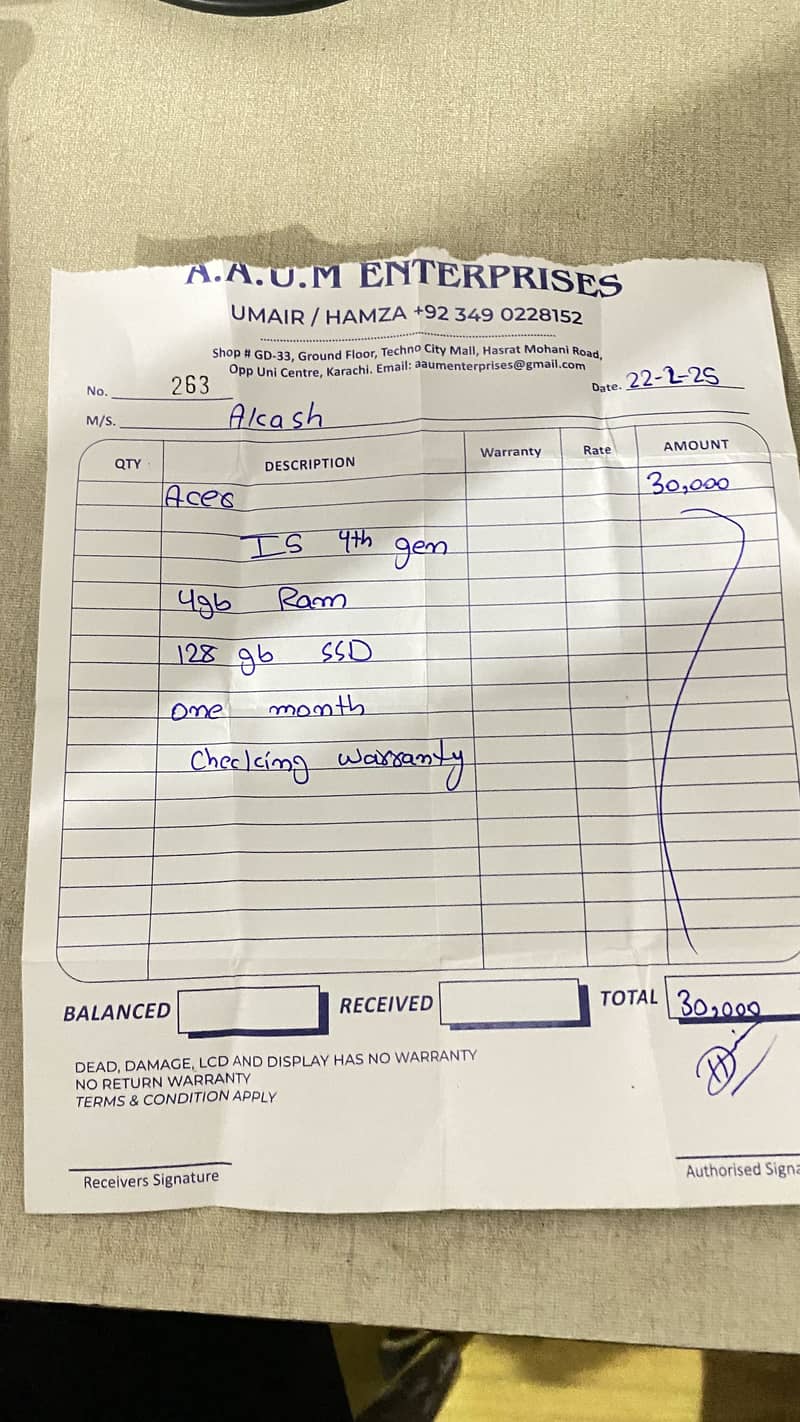 A.A.U.M ENTERPRISES
UMAIR / HAMZA +92 349 0228152
Shop # GD-33, Ground Floor, Techno City Mall, Hasrat Mohani Road,
Opp Uni Centre, Karachi. Email: aaumenterprises@gmail.com
No. 263 Date. 22-2-25
M/S. Akash
QTY DESCRIPTION Warranty Rate AMOUNT
Acer 30,000
I5 4th gen
4gb Ram
128 gb SSD
one month
Checking warranty
BALANCED RECEIVED TOTAL 30,000
DEAD, DAMAGE, LCD AND DISPLAY HAS NO WARRANTY
NO RETURN WARRANTY
TERMS & CONDITION APPLY
Receivers Signature Authorised Signa